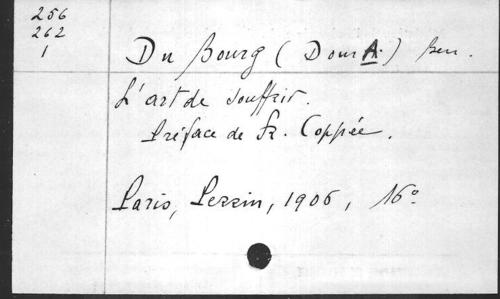 256
262
1
Du Bourg (Dom A.) ben.
L'art de souffrir.
Préface de Fr. Coppée.
Paris, Perrin, 1906, 16°